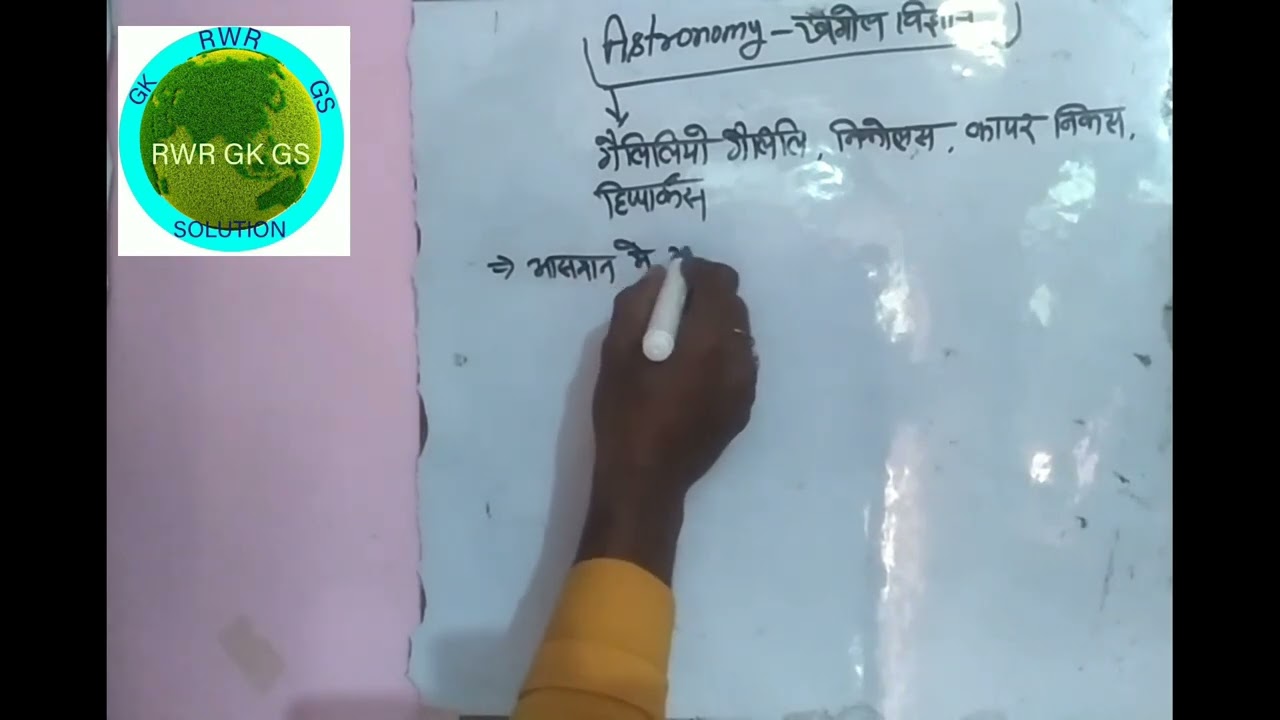 RWR
GK
GS
RWR GK GS
SOLUTION
Astronomy - खगोल विज्ञान
गैलिलियो गैलिलि, निकोलस, कापर निकस,
हिप्पार्कस
⇒ आसमान मे